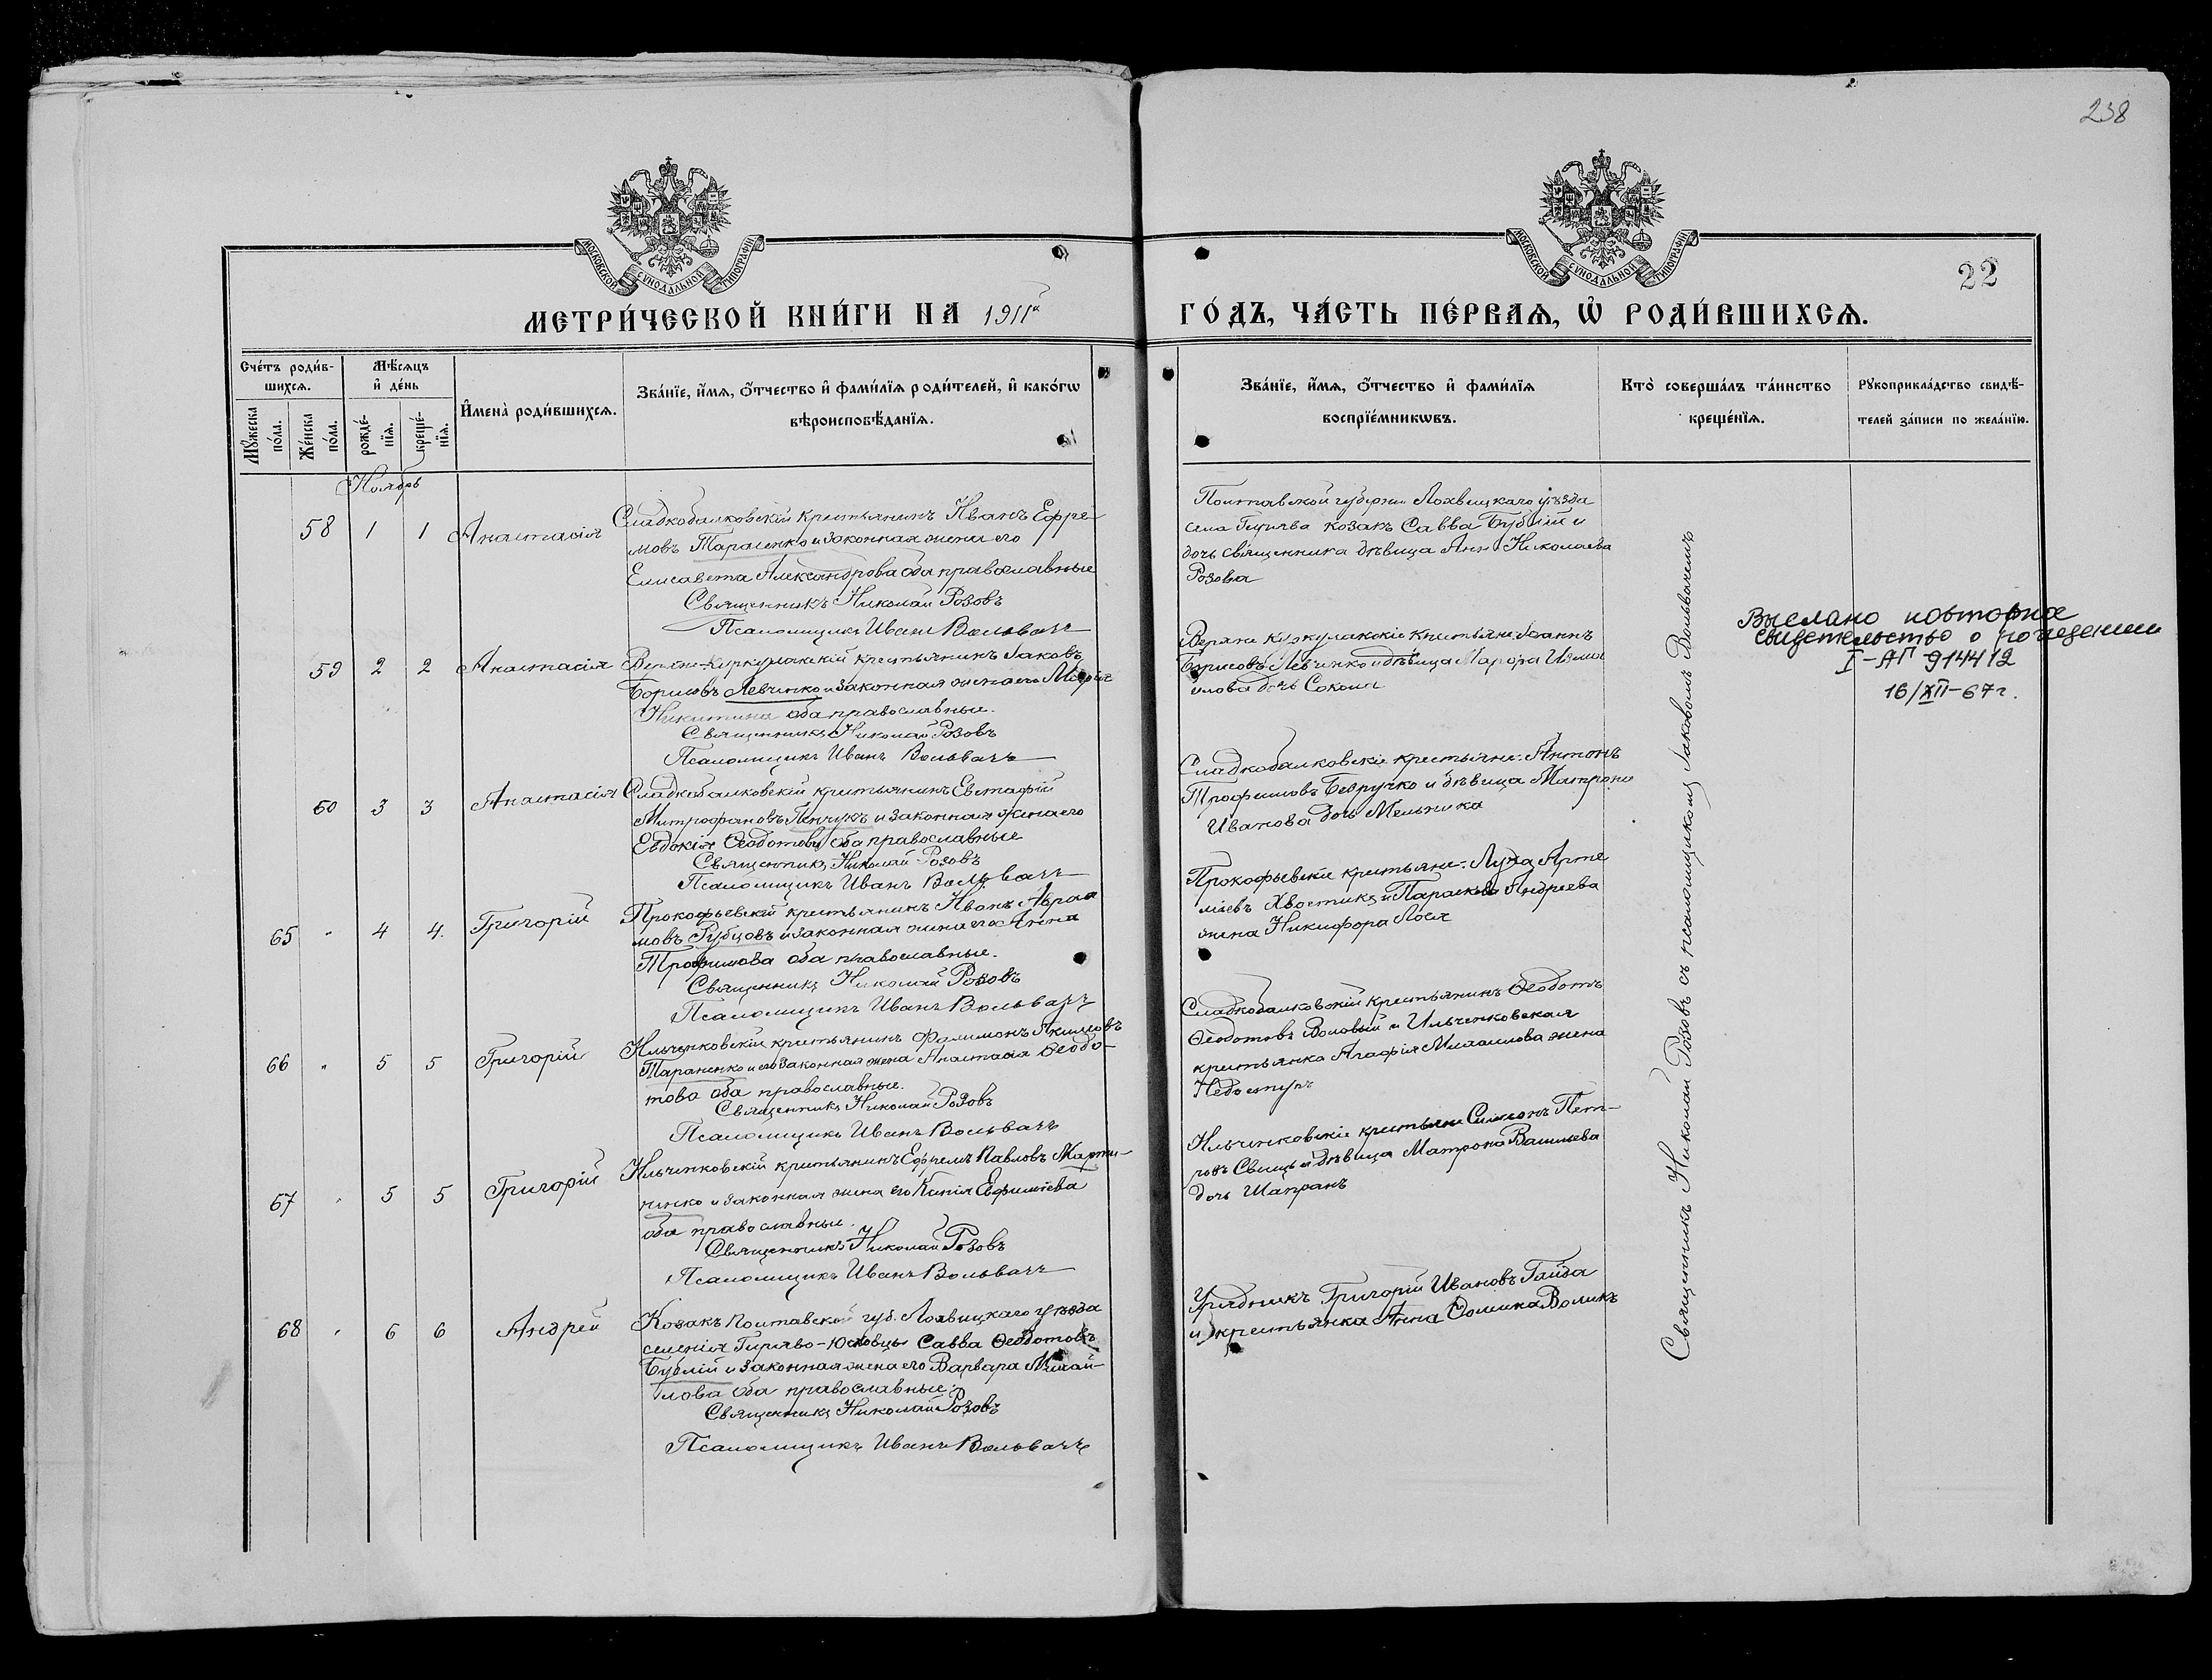 238
МОСКОВСКОЙ СѴНОДАЛЬНОЙ ТИПОГРАФІИ
МОСКОВСКОЙ СѴНОДАЛЬНОЙ ТИПОГРАФІИ
22
МЕТРИ́ЧЕСКОЙ КНИ́ГИ НА 1911й ГО́ДЪ, ЧА́СТЬ ПЕ́РВАѦ, Ѡ҆ РОДИ́ВШИХСѦ.
Сче́тъ роди́в-
шихсѧ.
Мꙋ́жеска по́ла.
Же́нска по́ла.
Мѣ́сѧцъ
и҆ де́нь
рожде́-
нїѧ.
креще́-
нїѧ.
И҆мена̀ роди́вшихсѧ.
Зва́нїе, и҆́мѧ, ѻ҆́тчество и҆ фами́лїѧ роди́телей, и҆ како́гѡ
вѣроисповѣ́данїѧ.
Зва́нїе, и҆́мѧ, ѻ҆́тчество и҆ фами́лїѧ
воспрїе́мникѡвъ.
Кто̀ соверша́лъ та́инство
креще́нїѧ.
Рꙋкоприкла́дство свидѣ́-
телей за́писи по жела́нїю.
Ноябрь
58 1 1 Анастасія
Сладкобалковскій крестьянинъ Иванъ Ефре-
мовъ Тарасенко и законная жена его
Елисавета Александрова оба православные
Священникъ Николай Розовъ
Псаломщикъ Иванъ Вольвачъ
Полтавской губерніи Лохвицкаго уѣзда
села Гирява козакъ Савва Бублій и
дочь священника дѣвица Анна Николаева
Розова
59 2 2 Анастасія
Верхне-Куркулакскій крестьянинъ Іаковъ
Борисовъ Левченко и законная жена его Марія
Никитина оба православные.
Священникъ Николай Розовъ
Псаломщикъ Иванъ Вольвачъ
Верхне Куркулакскіе крестьяне: Іоаннъ
Борисовъ Левченко и дѣвица Марфа
дочь Сокола
Выслано повторное
свидетельство о рождении
I-АП 914412
16/XII-67г.
60 3 3 Анастасія
Сладкобалковскій крестьянинъ Евстафій
Митрофановъ Пенчукъ и законная жена его
Евдокія Ѳеодотова оба православные
Священникъ Николай Розовъ
Псаломщикъ Иванъ Вольвачъ
Сладкобалковскіе крестьяне: Антонъ
Трофимовъ Безручко и дѣвица Матрона
Иванова дочь Мельника
65 " 4 4. Григорій
Прокофьевскій крестьянинъ Иванъ Авраа
мовъ Рубцовъ и законная жена его Анна
Трофимова оба православные.
Священникъ Николай Розовъ
Псаломщикъ Иванъ Вольвачъ
Прокофьевскіе крестьяне: Лука Арте
міевъ Хвостикъ и Параскева Андреева
жена Никифора Лося
66 " 5 5 Григорій
Ильченковскій крестьянинъ Филимонъ Акимовъ
Тараненко и его законная жена Анастасія Ѳеодо-
това оба православные.
Священникъ Николай Розовъ
Псаломщикъ Иванъ Вольвачъ
Сладкобалковскій крестьянинъ Ѳеодотъ
Ѳеодотовъ Воловый и Ильченковская
крестьянка Агафія Михаилова жена
Недоступъ
67 " 5 5 Григорій
Ильченковскій крестьянинъ Ефремъ Павловъ Марти-
ненко и законная жена его Ксенія Евфиміева
оба православные.
Священникъ Николай Розовъ
Псаломщикъ Иванъ Вольвачъ
Ильченковскіе крестьяне Симеонъ Пет-
ровъ Свищъ и дѣвица Матрона Васильева
дочь Шапранъ
68 " 6 6 Андрей
Козакъ Полтавской губ. Лохвицкаго уѣзда
селенія Гиряво-Юсковцы Савва Ѳеодотовъ
Бублій и законная жена его Варвара Михай-
лова оба православные.
Священникъ Николай Розовъ
Псаломщикъ Иванъ Вольвачъ
Урядникъ Григорій Ивановъ Гайда
и крестьянка Анна Воликъ
Священникъ Николай Розовъ съ псаломщикомъ Іаковомъ Вольвачемъ